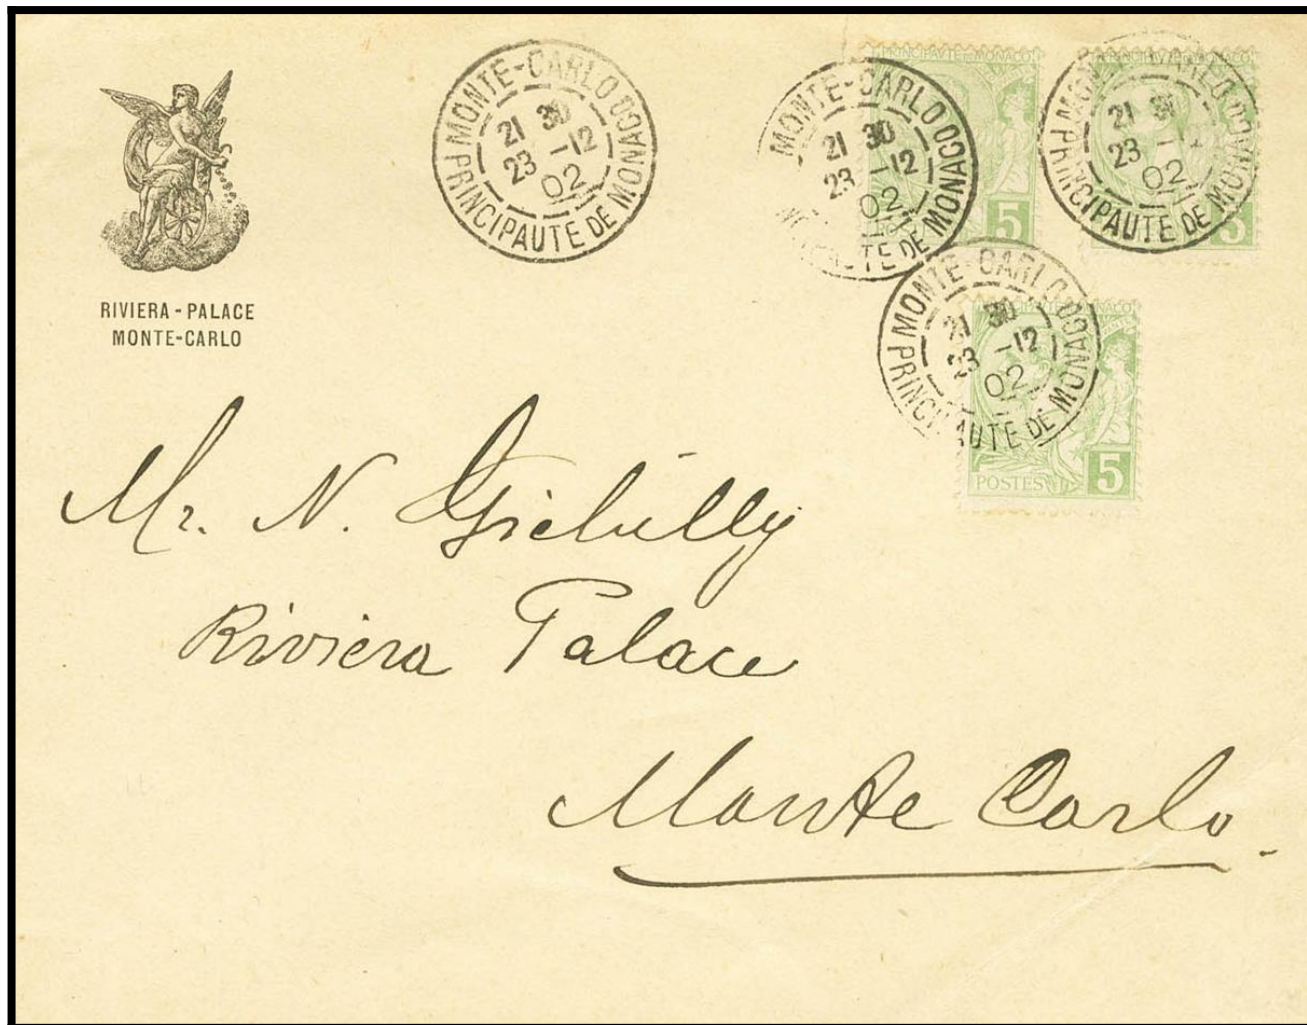 RIVIERA - PALACE
MONTE-CARLO
MONTE-CARLO
21 30
23 -12
02
PRINCIPAUTE DE MONACO
MONTE-CARLO
21 30
23 -12
02
DE MONACO
PRINCIPAUTÉ DE MONACO
5
21 30
23
02
PRINCIPAUTE DE MONACO
5
MONTE-CARLO
21 30
23 -12
02
PRINCIPAUTE DE MONACO
POSTES
5
Mr. N.
Riviera Palace
Monte Carlo.